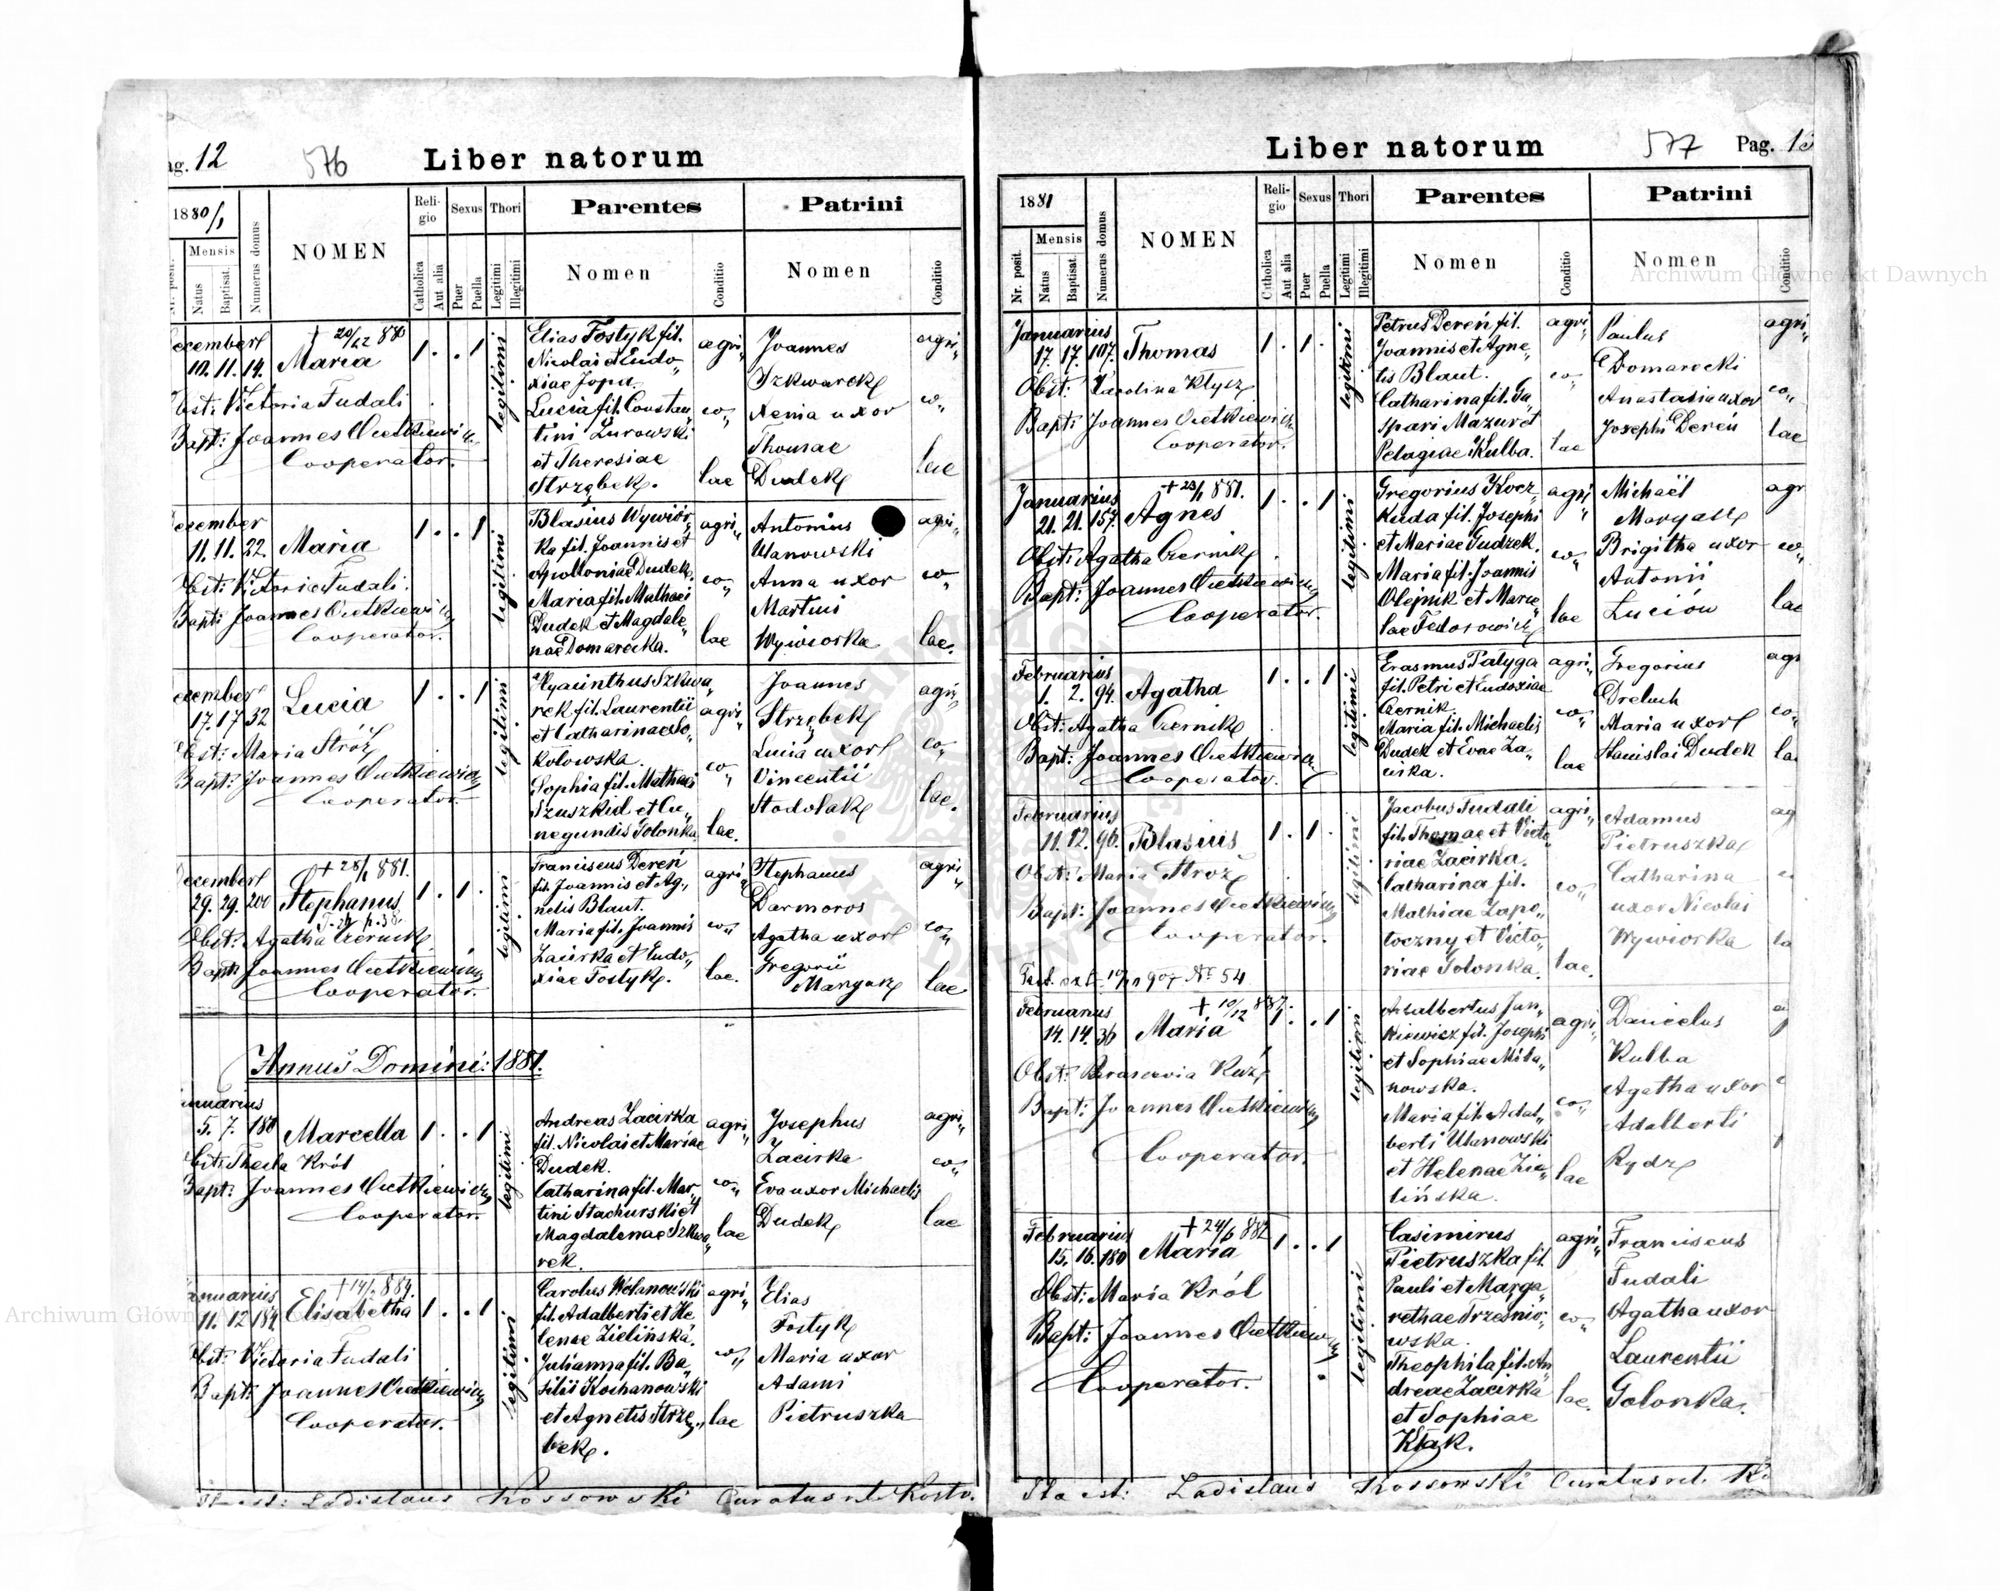 ag. 12
576
Liber natorum
1880/1
Mensis
Nr. posit.
Natus
Baptisat.
Numerus domus
NOMEN
Religio
Catholica
Aut alia
Sexus
Puer
Puella
Thori
Legitimi
Illegitimi
Parentes
Nomen
Conditio
Patrini
Nomen
Conditio
ecember
10. 11. 14.
† 20/12 880
Maria
1 . . 1
legitimi
Obst: Victoria Fudali
Bapt: Joannes Cietkiewicz
Cooperator.
Elias Fostyk fil.
Nicolai et Eudo„
xiae Jopa.
Lucia fil. Constan„
tini Żurowski
et Theresiae
Strzębek.
agri„
co„
lae
Joannes
Szkwarek
Xenia uxor
Thomae
Dudek
agri„
co„
lae
ecember
11. 11. 22.
Maria
1 . . 1
legitimi
Obst: Victoria Fudali.
Bapt: Joannes Cietkiewicz
Cooperator.
Blasius Wywiór„
ka fil. Joannis et
Apolloniae Dudek.
Maria fil. Mathaei
Dudek et Magdale„
nae Domarecka.
agri„
co„
lae
Antonius
Ulanowski
Anna uxor
Martini
Wywiorka
agri„
co„
lae.
ecember
17. 17 32
Lucia
1 . . 1
legitimi
Obst: Maria Stróż
Bapt: Joannes Cietkiewicz
Cooperator.
Hyacinthus Szkwa„
rek fil. Laurentii
et Catharinae So„
kołowska.
Sophia fil. Mathaei
Szuszkid et Cu„
negundis Golonka
agri„
co„
lae.
Joannes
Strzębek
Lucia uxor
Vincentii
Stodolak
agri„
co„
lae.
ecember
29. 29. 200
† 28/1 881.
Stephanus
1 . 1 .
legitimi
Obst: Agatha Czernik
Bapt: Joannes Cietkiewicz
Cooperator.
Franciscus Dereń
fil. Joannis et Ag„
netis Blaut.
Maria fil. Joannis
Zacirka et Eudo„
xiae Fostyk.
agri„
co„
lae.
Stephanus
Darmoros
Agatha uxor
Gregorii
Maryak
agri„
co„
lae
Annus Domini: 1881.
nuarius
5. 7. 180
Marcella
1 . . 1
legitimi
Obst: Thecla Król
Bapt: Joannes Cietkiewicz
Cooperator.
Andreas Zacirka
fil. Nicolai et Mariae
Dudek.
Catharina fil. Mar„
tini Stachurski et
Magdalenae Szkwa„
rek.
agri„
co„
lae
Josephus
Zacirka
Eva uxor Michaelis
Dudek
agri„
co„
lae
nuarius
11. 12 184
† 14/2 884.
Elisabetha
1 . . 1
legitimi
Obst: Victoria Fudali
Bapt: Joannes Cietkiewicz
Cooperator.
Carolus Wolanowski
fil. Adalberti et He„
lenae Zielińska.
Julianna fil. Ba„
silii Kochanowski
et Agnetis Strzę„
bek.
agri„
co„
lae
Elias
Fostyk
Maria uxor
Adami
Pietruszka
Ita est: Ladislaus Kossowski Curatus
577
Pag. 13
Liber natorum
1881
Nr. posit.
Mensis
Natus
Baptisat.
Numerus domus
NOMEN
Religio
Catholica
Aut alia
Sexus
Puer
Puella
Thori
Legitimi
Illegitimi
Parentes
Nomen
Conditio
Patrini
Nomen
Conditio
Januarius
17. 17. 107.
Thomas
1 . 1 .
legitimi
Obst: Karolina Kłysz
Bapt: Joannes Cietkiewicz
Cooperator.
Petrus Dereń fil.
Joannis et Agne„
tis Blaut.
Catharina fil. Ga„
spari Mazur et
Pelagiae Kulba.
agri„
co„
lae
Paulus
Domarecki
Anastasia uxor
Josephi Dereń
agri„
co„
lae
Januarius
21. 21. 157.
† 23/1 881.
Agnes
1 . . 1
legitimi
Obst: Agatha Czernik
Bapt: Joannes Cietkiewicz
Cooperator.
Gregorius Kocz„
kuda fil. Josephi
et Mariae Gudzek.
Maria fil. Joannis
Olejnik et Marce„
lae Fedorowicz
agri„
co„
lae
Michaël
Maryak
Brigitha uxor
Antonii
Luciów
agr
co„
lae
Februarius
1. 2. 94.
Agatha
1 . . 1
legitimi
Obst: Agatha Czernik
Bapt: Joannes Cietkiewicz
Cooperator.
Erasmus Pałyga
fil. Petri et Eudoxiae
Czernik.
Maria fil. Michaelis
Dudek et Evae Za„
cirka.
agri„
co„
lae
Gregorius
Dreluch
Maria uxor
Stanislai Dudek
agr
co„
la
Februarius
11. 12. 96.
Blasius
1 . 1 .
legitimi
Obst: Maria Stróż
Bapt: Joannes Cietkiewicz
Cooperator.
Jacobus Fudali
fil. Thomae et Victo„
riae Zacirka.
Catharina fil.
Mathiae Zapo„
toczny et Victo„
riae Golonka.
agri„
co„
lae.
Adamus
Pietruszka
Catharina
uxor Nicolai
Wywiorka
ag
la
Februarius
14. 14. 36
† 10/12 887.
Maria
1 . . 1
legitimi
Bapt: Joannes Cietkiewicz
Cooperator.
Adalbertus Jan„
kiewicz fil. Josephi
et Sophiae Mila„
nowska.
Maria fil. Adal„
berti Ulanowski
et Helenae Zie„
lińska.
agri„
co„
lae
Daniel
Kulba
Agatha uxor
Adalberti
Rydz
Februarius
15. 16. 180
† 24/6 882
Maria
1 . . 1
legitimi
Obst: Maria Król
Bapt: Joannes Cietkiewicz
Cooperator.
Casimirus
Pietruszka fil.
Pauli et Marga„
rethae Trześnio„
wska.
Theophila fil. An„
dreae Zacirka
et Sophiae
Kłak.
agri„
co„
lae.
Franciscus
Fudali
Agatha uxor
Laurentii
Golonka.
Ita est: Ladislaus Kossowski Curatus
Archiwum Główne Akt Dawnych